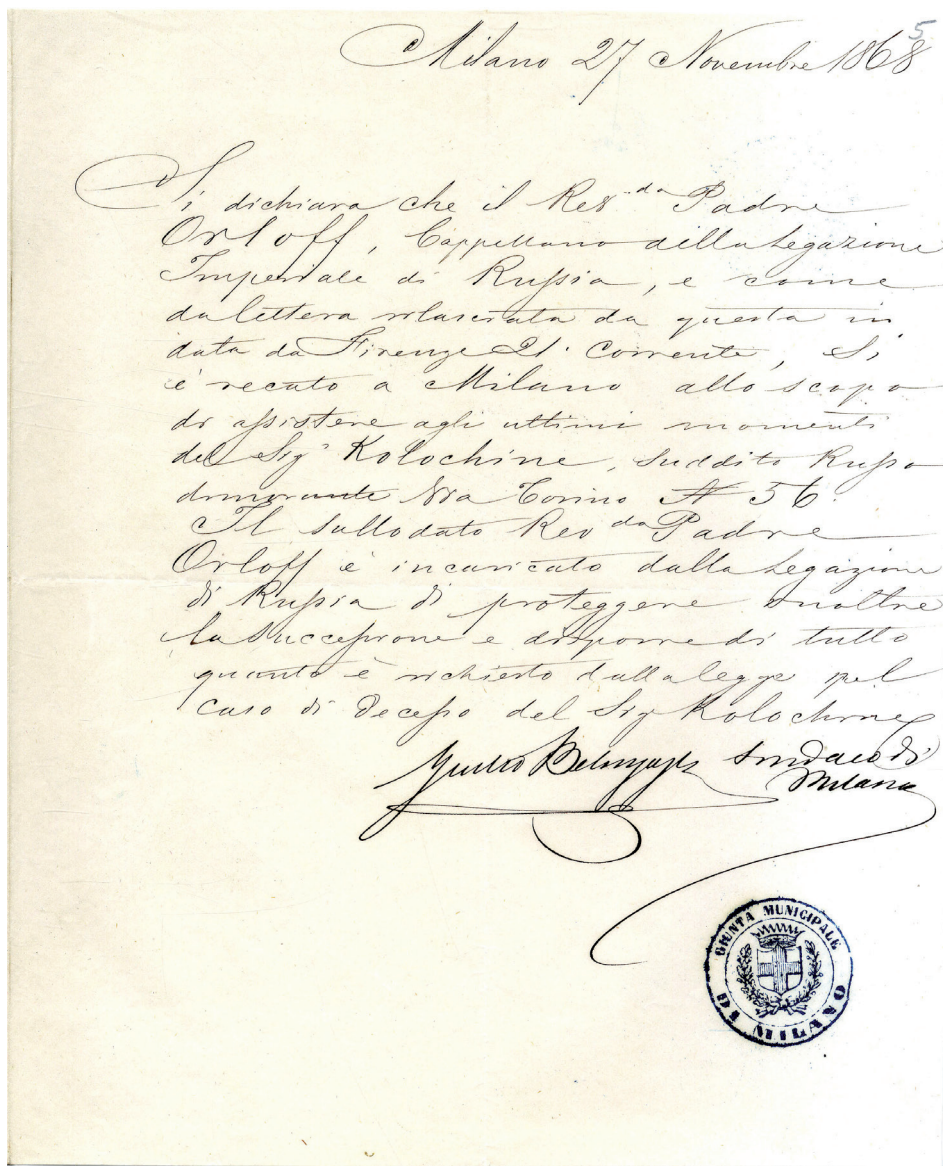 5
Milano 27 Novembre 1868
Si dichiara che il Rev.do Padre
Orloff, Cappellano della Legazione
Imperiale di Russia, e come
da lettera rilasciata da questa in
data da Firenze 21. corrente, Si
è recato a Milano allo scopo
di assistere agli ultimi momenti
del Sigr Kolochine, suddito Russo
dimorante Via Torino N 56.
Il sullodato Revdo Padre
Orloff è incaricato dalla Legazione
di Russia di proteggere inoltre
la Successione e disporre di tutto
quanto è richiesto dalla legge pel
caso di Decesso del Sig Kolochine
Sindaco di
Milano
GIUNTA MUNICIPALE
DI MILANO